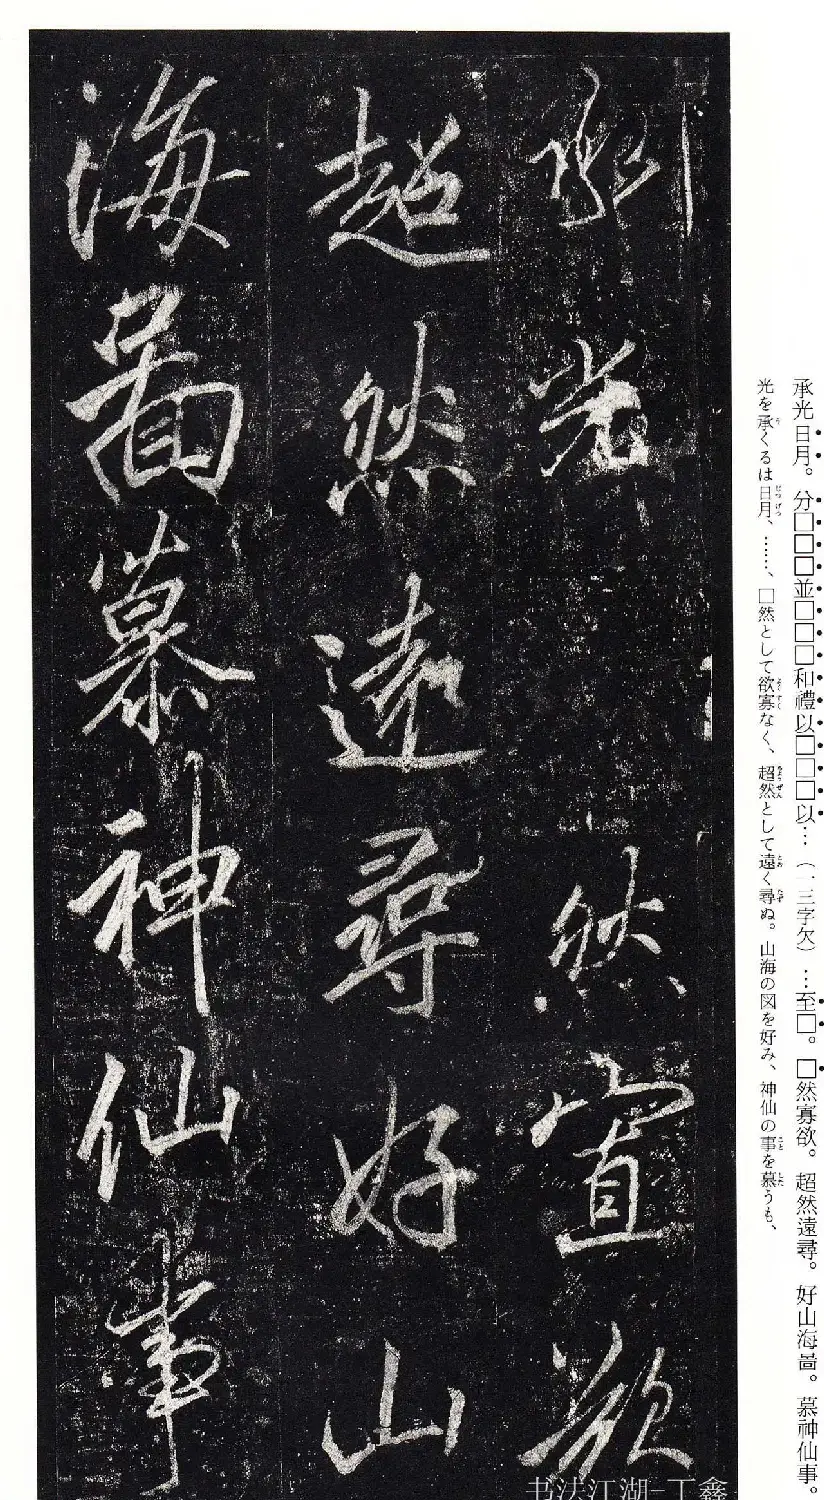 承光日月。分□□□並□□□和禮以□□□以…（一三字欠）…至□。□然寡欲。超然遠尋。好山海啚。慕神仙事。
光を承くるは日月、……、□然として欲寡なく、超然として遠く尋ぬ。山海の図を好み、神仙の事を慕うも、
承光然寡欲
超然遠尋好山
海啚慕神仙事
书法江湖-丁鑫